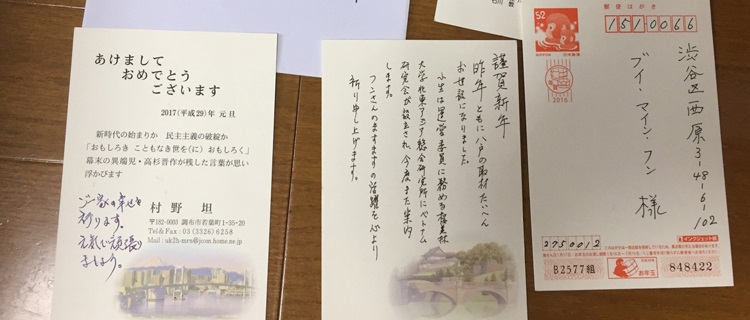 あけまして
おめでとう
ございます
2017(平成29)年 元旦
新時代の始まりか 民主主義の破綻か
「おもしろき こともなき世を(に) おもしろく」
幕末の異端児・高杉晋作が残した言葉が思い
浮かびます
村野 坦
〒182-0003 調布市若葉町1-35-20
Tel & Fax : 03 (3326) 6258
Mail : uk2h-mrn@jcom.home.ne.jp
ご一家の幸せを
祈ります。
元気で頑張り
ましょう。
謹賀新年
昨年ともに八戸の取材たいへん
お世話になりました。
小生は運営委員に務める桜美林
大学北東アジア総合研究所にベトナム
研究会が設立され、今度また案内
します。
フンさんのますますの活躍を心より
祈り申し上げます。
郵便はがき
52
1510066
2016
渋谷区西原3-48-6-102
ブイ・マイン・フン 様
2750012
インクジェット紙
お年玉
B2577組
848422